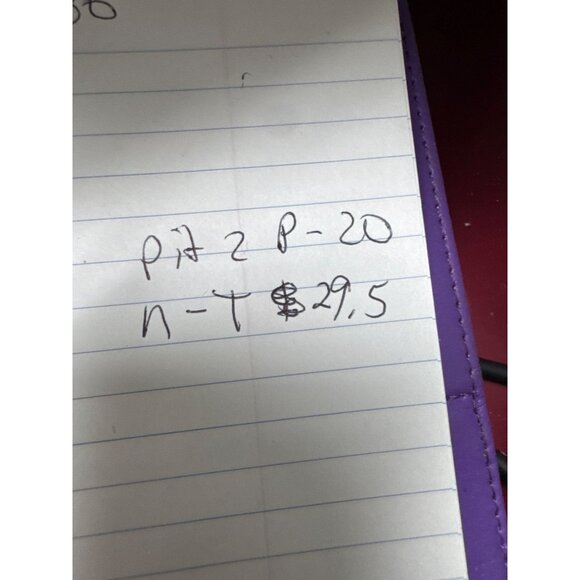 Pit 2 P-20
n-T $29.5